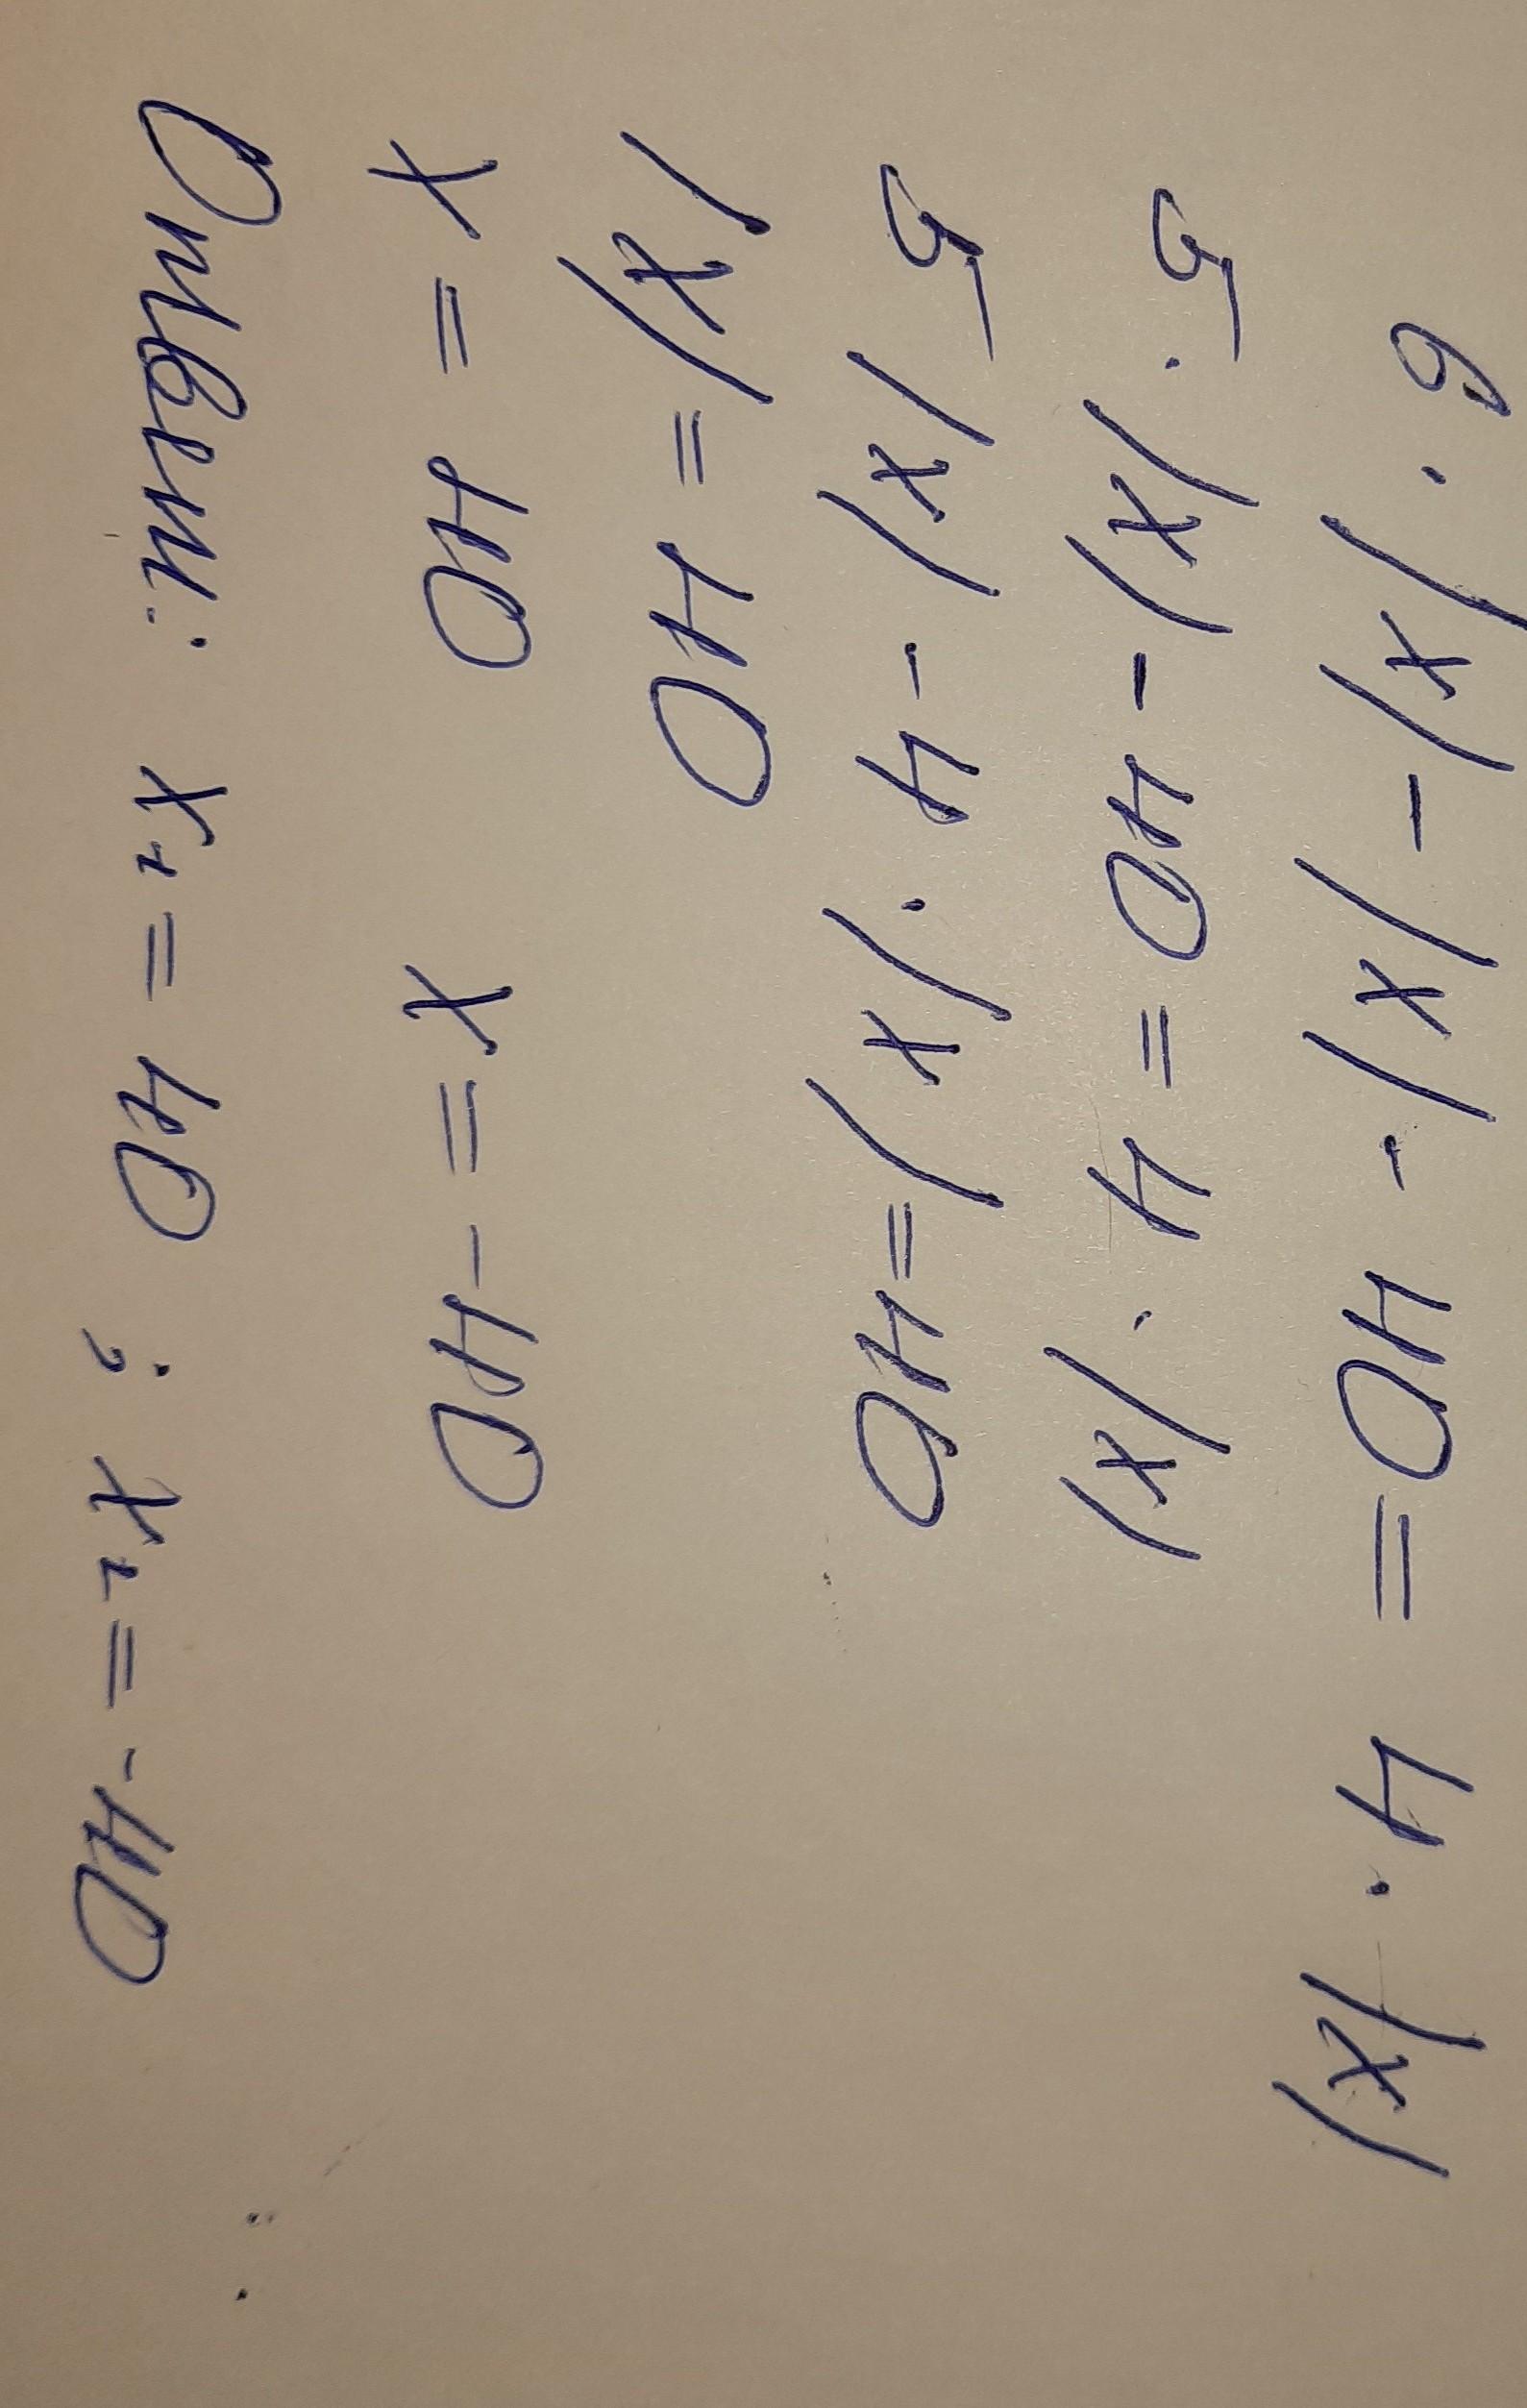 6 · |x| - |x| - 40 = 4 · |x|
5 · |x| - 40 = 4 · |x|
5 |x| - 4 · |x| = 40
|x| = 40
x = 40 x = -40
Ответ: x₁ = 40 ; x₂ = -40